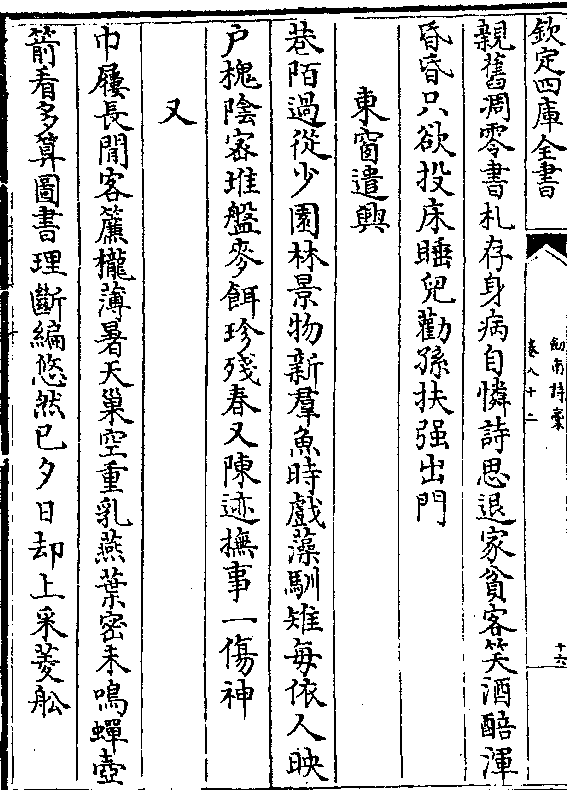 欽定四庫全書
劍南詩稾
卷八十二
十六
親舊凋零書札存身病自憐詩思退家貧客笑酒醅渾
昏昏只欲投床睡兒勸孫扶强出門
東窗遣興
巷陌過從少園林景物新羣魚時戲藻馴雉每依人映
户槐陰密堆盤麥餌珍殘春又陳迹撫事一傷神
又
巾屨長閒客簾櫳薄暑天巢空重乳燕葉密未鳴蟬壺
箭看多算圖書理斷編悠然已夕日却上采菱舩